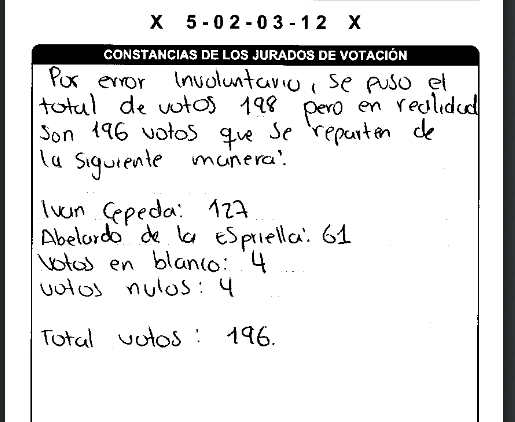 X 5-02-03-12 X
CONSTANCIAS DE LOS JURADOS DE VOTACIÓN
Por error Involuntario, se puso el
total de votos 198 pero en realidad
Son 196 votos que se reparten de
la siguiente manera:
Ivan Cepeda: 127
Abelardo de la Espriella: 61
Votos en blanco: 4
votos nulos: 4
Total votos: 196.